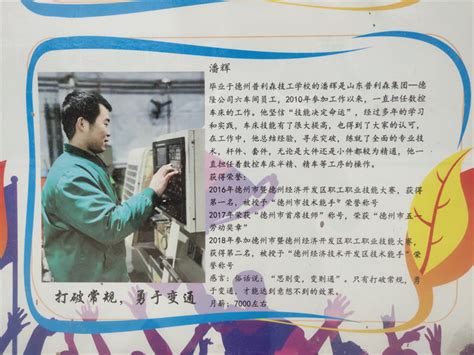 潘辉
毕业于德州普利森技工学校的潘辉是山东普利森集团—德
隆公司六车间员工，2010年参加工作以来，一直担任数控
车床的工作。他坚信“技能决定命运”，经过多年的学习
和实践，车床技能有了很大提高，也得到了大家的认可，
在工作中，他总结经验，寻求突破，练就了全面的专业技
术，秆件、套件，无论是大件还是小件都较为精通，他一直
担任着数控车床半精、精车等工序的操作。
获得荣誉：
2016年德州市暨德州经济开发区职工职业技能大赛，获得
第一名，被授予“德州市技术能手”荣誉称号
2017年荣获“德州市首席技师”称号，荣获“德州市五一
劳动奖章”
2018年参加德州市暨德州经济开发区职工职业技能大赛，
获得第二名，被授予“德州经济技术开发区技术能手”荣
誉称号
感言：俗话说：“思则变，变则通”。只有打破常规，勇
于变通，才能达到意想不到的效果。
月薪：7000左右
打破常规，勇于变通